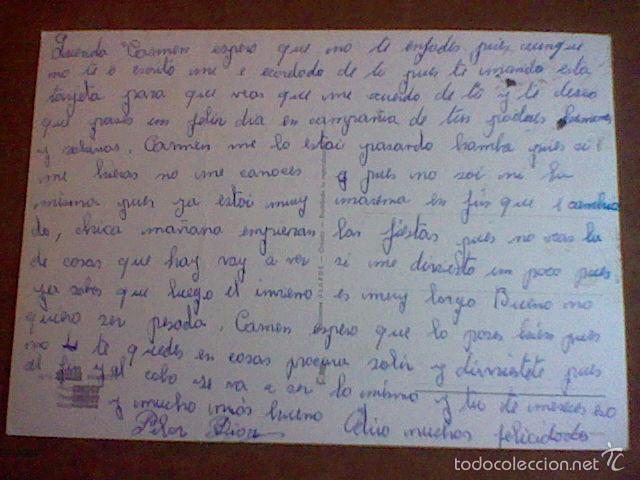 Querida Carmen espero que no te enfades pues aunque
no te e escrito me e acordado de ti pues te mando esta
tarjeta para que veas que me acuerdo de ti y te deseo
que pases un feliz dia en compania de tus padres hermanos
y sobrinos. Carmen me lo estoi pasando bamba pues si
me vieras no me conoces pues no soi ni la
misma pues ya estoi muy morena en fin que e cambia
do, chica mañana empiezan las fiestas pues no veas la
de cosas que hay voy a ver si me divierto un poco pues
ya sabes que luego el invieno es muy largo Bueno no
quiero ser pesada. Carmen espero que lo pases bien pues
no te quedes en casa procura salir y diviertete pues
al fin y al cabo se va a ser lo mismo y tu te mereces eso
y mucho más bueno
Pilar muchas felicidades
todocoleccion.net
todocoleccion.net